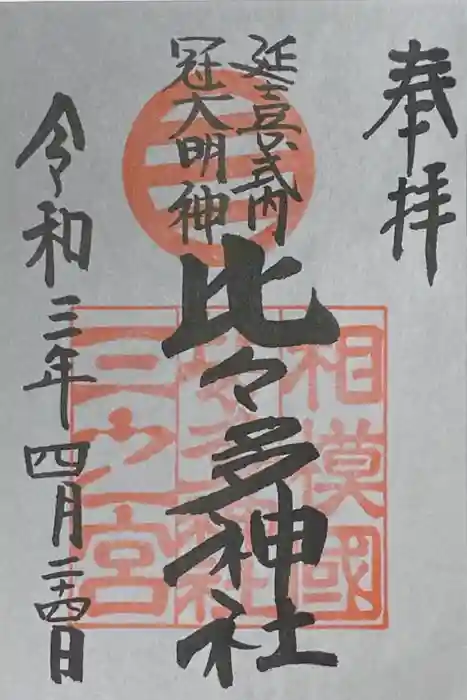 奉拝
延喜式内
冠大明神
比々多神社
相模國
三之宮
令和三年四月二十四日